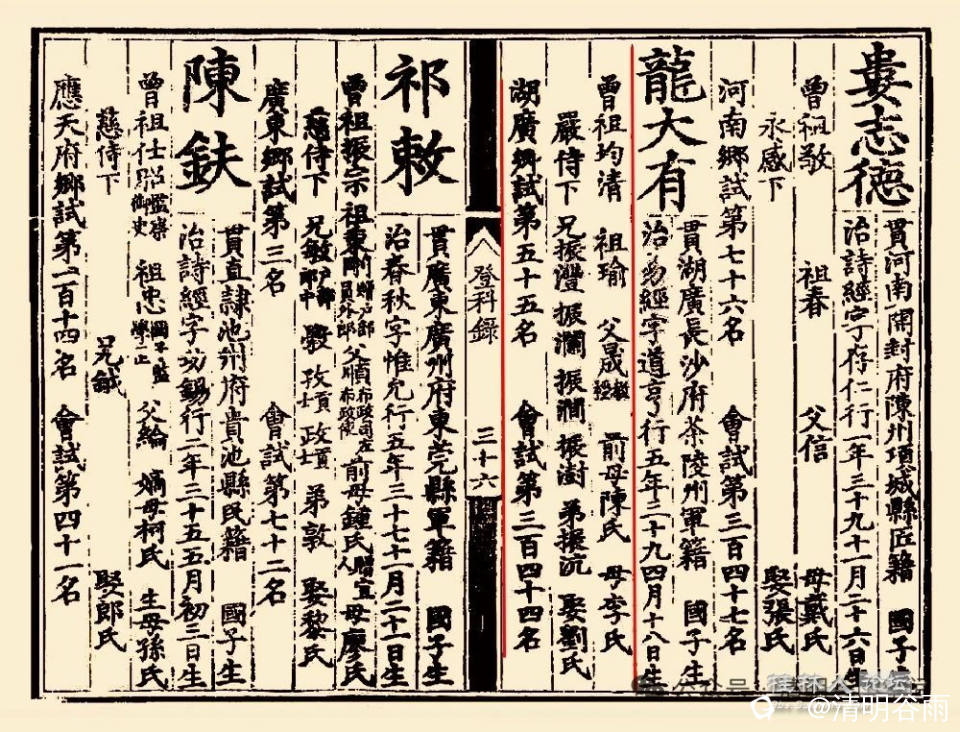 婁志德
貫河南開封府陳州項城縣匠籍 國子生
治詩經字存仁行一年三十九十一月二十六日生
曾祖敬 祖春 父信 母戴氏
永感下 娶張氏
河南鄉試第七十六名 會試第三百四十七名
龍大有
貫湖廣長沙府茶陵州軍籍 國子生
治易經字道亨行五年三十九四月十八日生
曾祖均清 祖瑜 父晟 前母陳氏 母李氏
嚴侍下 兄振灃 振瀾 振澗 振澍 弟振沅 娶劉氏
湖廣鄉試第五十五名 會試第三百四十四名
登科錄 三十六
祁敕
貫廣東廣州府東莞縣軍籍 國子生
治春秋字惟允行五年三十七十二月二十一日生
曾祖振宗 祖東剛贈戶部員外郎 父順布政司左布政使 前母鍾氏贈宜人 母廖氏
慈侍下 兄敏戶部郎中 弟敦 娶黎氏
廣東鄉試第三名 會試第七十二名
陳鈇
貫直隷池州府貴池縣民籍 國子生
治詩經字功錫行二年三十五五月初三日生
曾祖仕 監察御史 祖忠國子監學正 父綸 嫡母柯氏 生母孫氏
慈侍下 兄鉞 娶郎氏
應天府鄉試第一百十四名 會試第四十一名
桂林人論坛
@清明谷雨